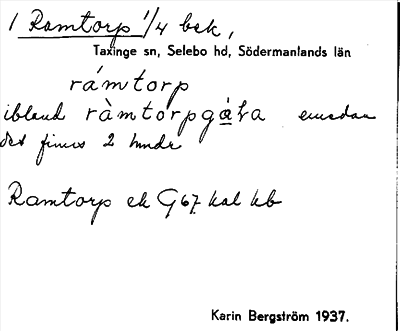 1 Ramtorp 1/4 bek,
Taxinge sn, Selebo hd, Södermanlands län
rámtorp
ibland ràmtórpgạ́ta emedan
det finns 2 hundr
Ramtorp ek G 67 kal kb
Karin Bergström 1937.